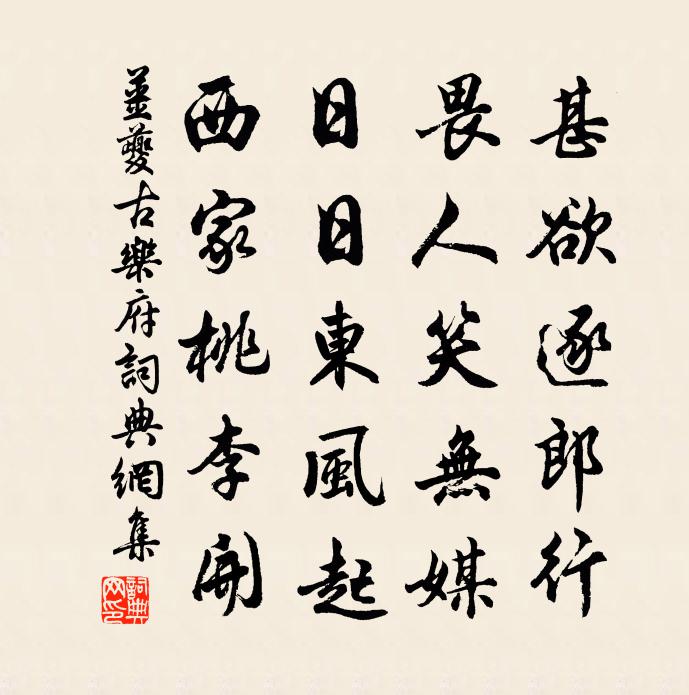 甚欲逐郎行
畏人笑無媒
日日東風起
西家桃李開
姜夔古樂府詞典網集
詞典網印